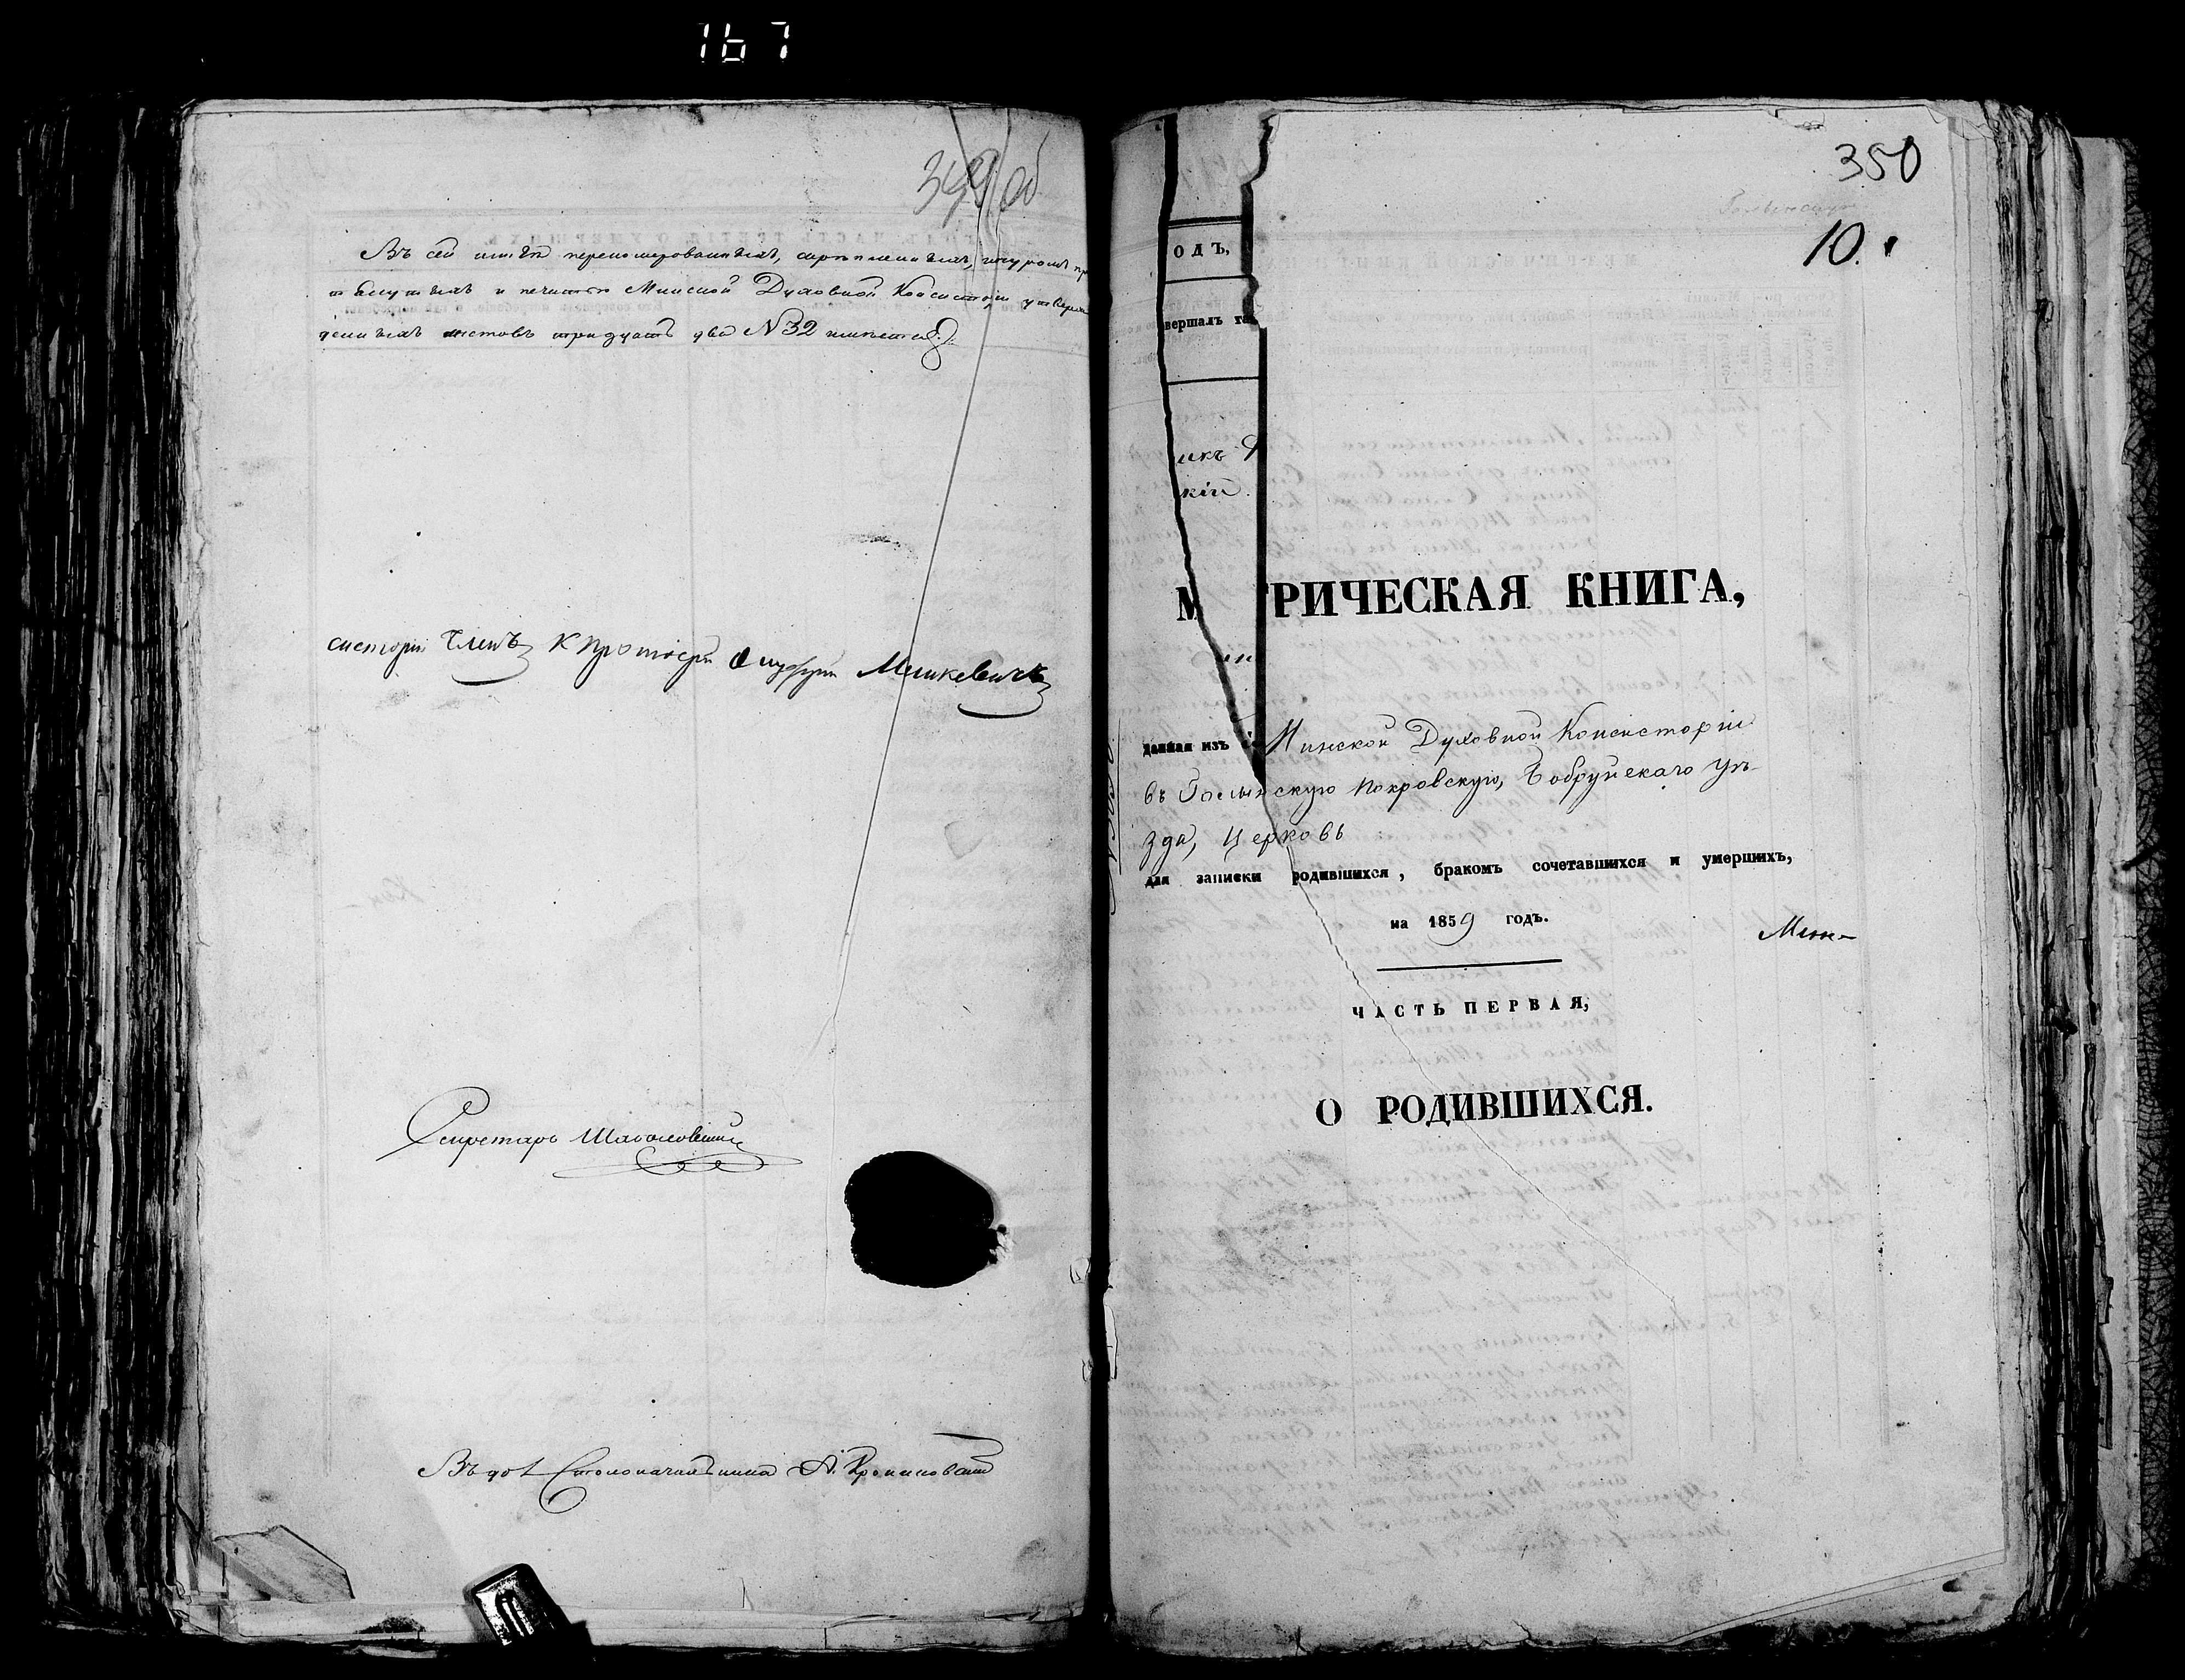 167
349 об
Въ сей книгѣ перенумерованныхъ, скрѣпленныхъ, шнуромъ пр
тянутыхъ и печатью Минской Духовной Консисторіи утверж
денныхъ листовъ тридцать два № 32 имѣется
систоріи Членъ К Протоіерей Онуфрій Мешкевичъ
Секретарь
Въ дол Столоначальника А.
350
10.
ОДЪ,
вершалъ та
икъ
кій.
М РИЧЕСКАЯ КНИГА,
данная изъ Минской Духовной Консисторіи
въ Голынскую Покровскую, Бобруйскаго Уѣ-
зда, Церковь
для записки родившихся, бракомъ сочетавшихся и умершихъ,
на 1859 годъ.
Мин-
ЧАСТЬ ПЕРВАЯ,
О РОДИВШИХСЯ.